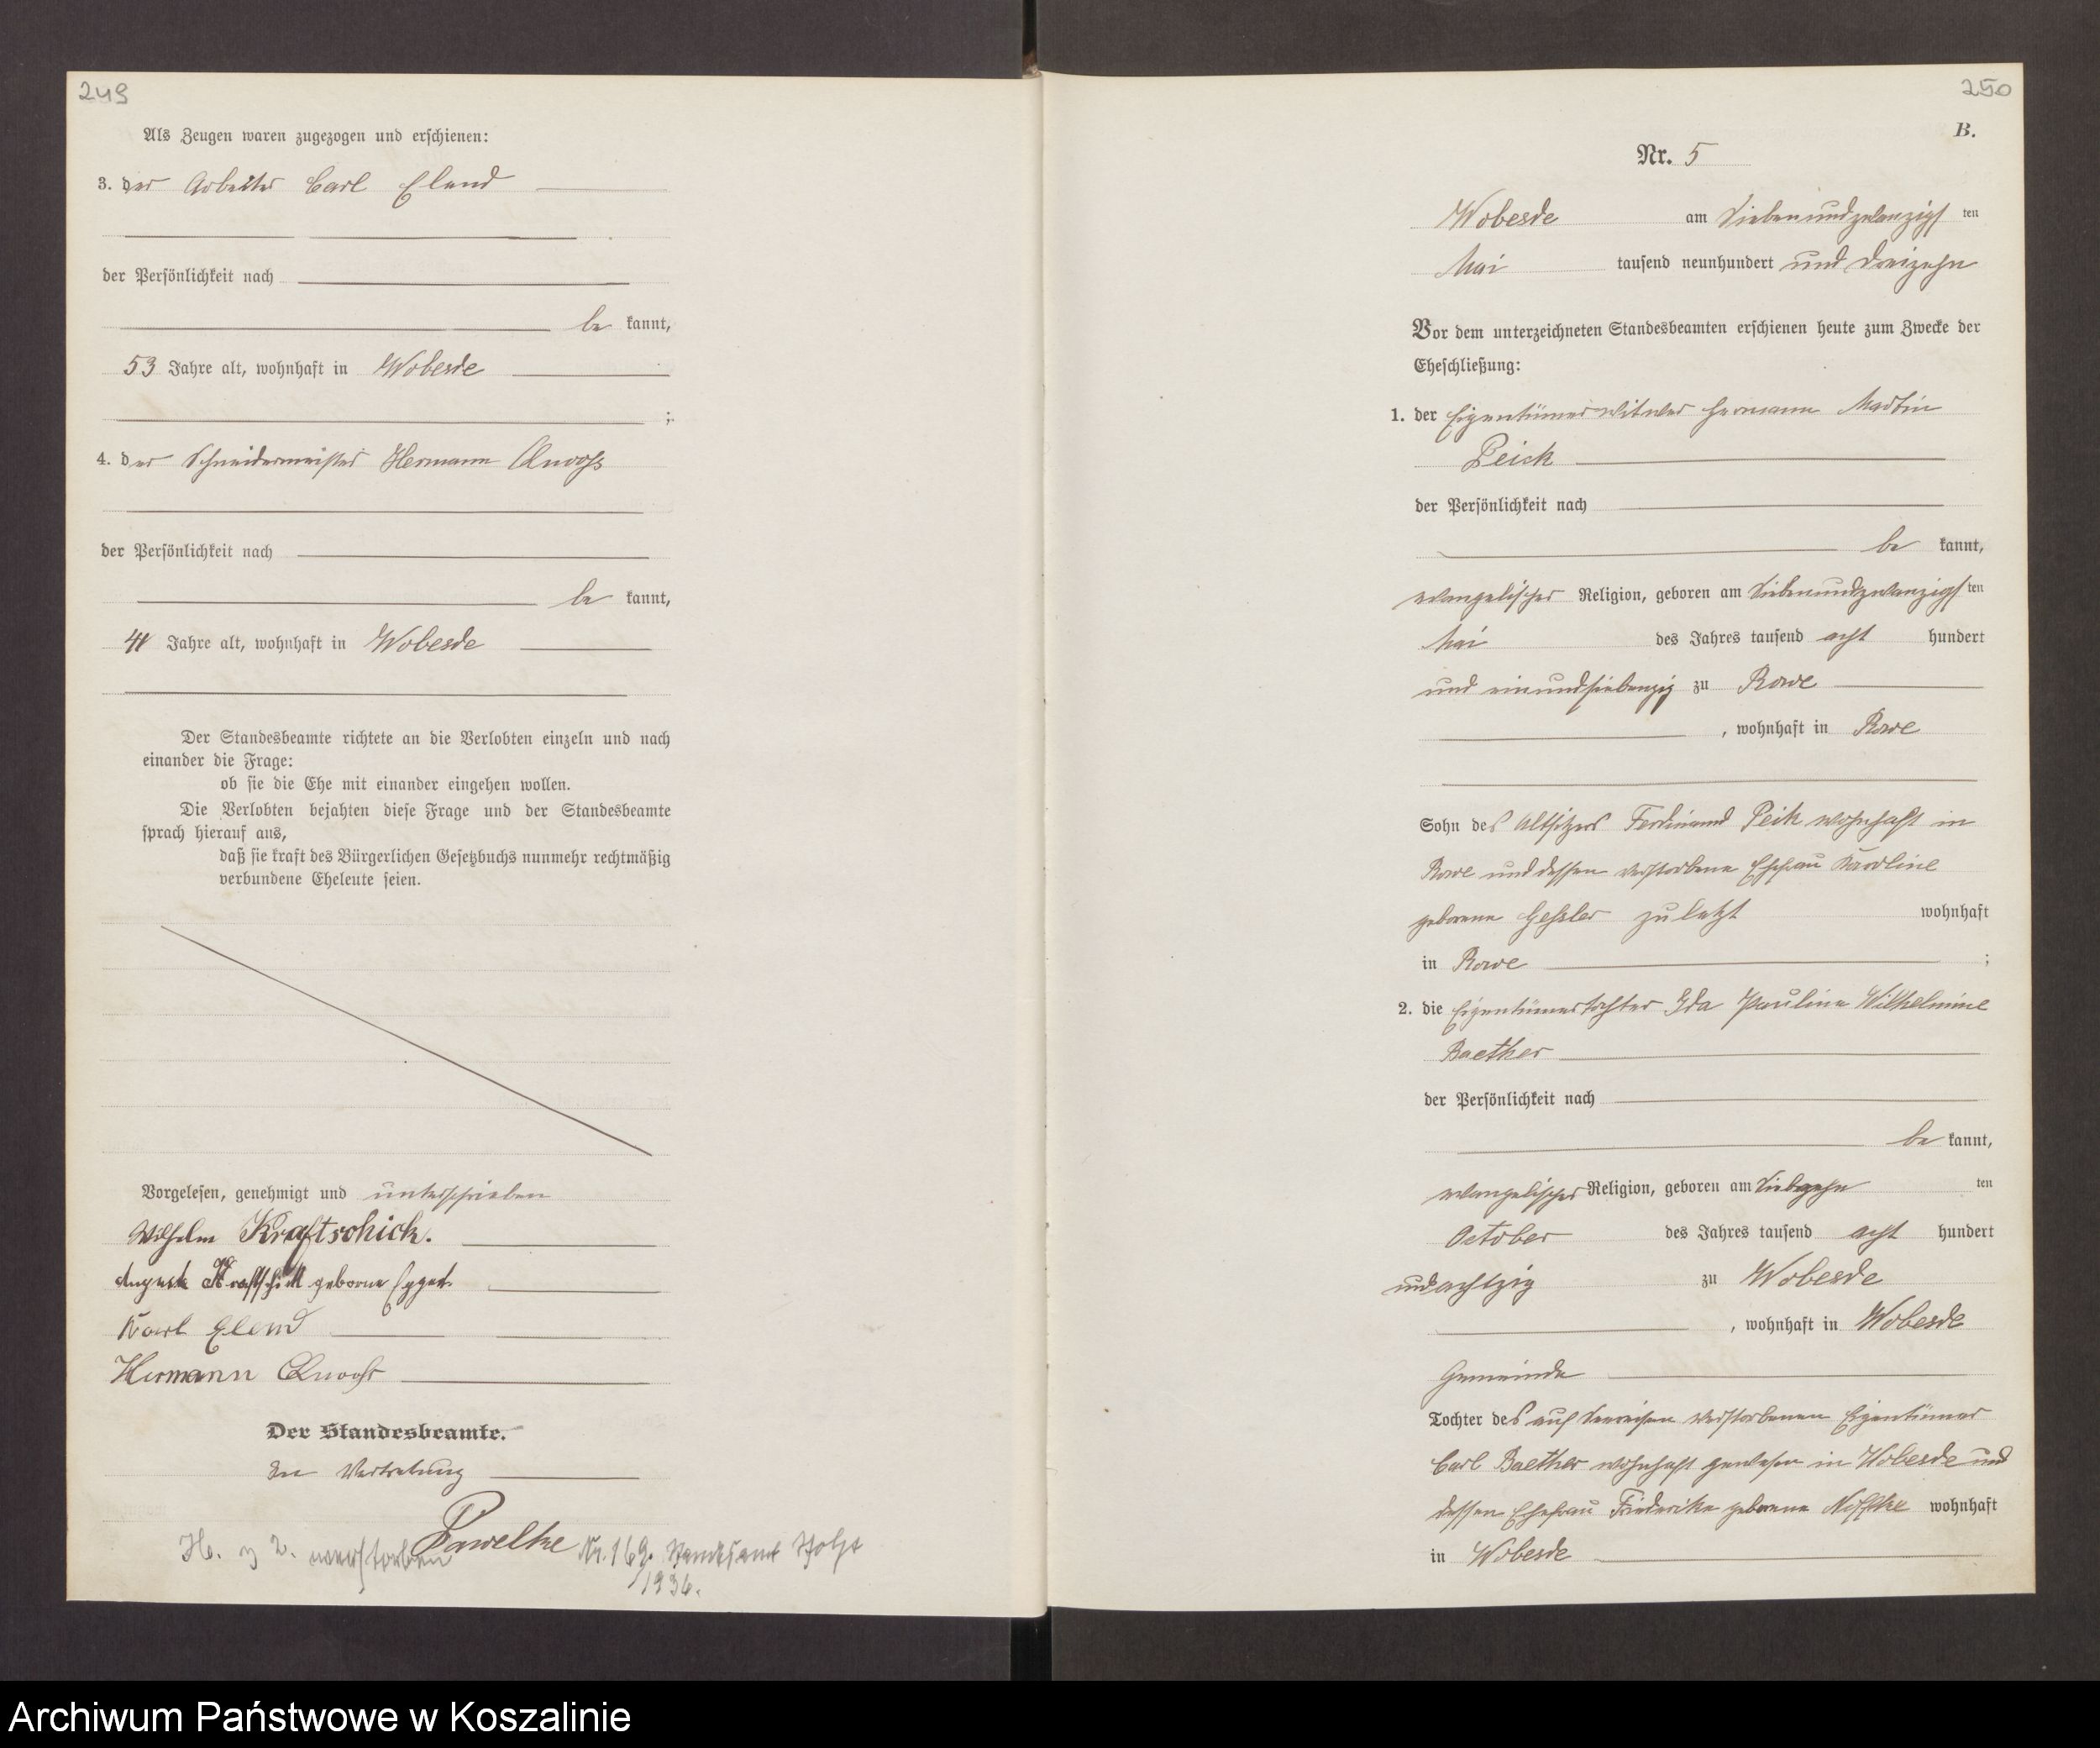 249
Als Zeugen waren zugezogen und erschienen:
3. der Arbeiter Carl Elend
der Persönlichkeit nach
be kannt,
53 Jahre alt, wohnhaft in Wobesde
;
4. der Schneidermeister Hermann
der Persönlichkeit nach
be kannt,
41 Jahre alt, wohnhaft in Wobesde
Der Standesbeamte richtete an die Verlobten einzeln und nach
einander die Frage:
ob sie die Ehe mit einander eingehen wollen.
Die Verlobten bejahten diese Frage und der Standesbeamte
sprach hierauf aus,
daß sie kraft des Bürgerlichen Gesetzbuchs nunmehr rechtmäßig
verbundene Eheleute seien.
Vorgelesen, genehmigt und unterschrieben
Wilhelm Kraftschick.
Auguste Kraftschick geborne
Karl Elend
Hermann
Der Standesbeamte.
In Vertretung
Pawelke
H. z 2. verstorben Nr. 169. Standesamt Stolp
1936.
250
B.
Nr. 5
Wobesde am Siebenundzwanzigs ten
Mai tausend neunhundert und dreizehn
Vor dem unterzeichneten Standesbeamten erschienen heute zum Zwecke der
Eheschließung:
1. der Eigentümerwitwer Hermann Martin
Peick
der Persönlichkeit nach
be kannt,
evangelischer Religion, geboren am Siebenundzwanzigs ten
Mai des Jahres tausend acht hundert
und einundsiebenzig zu Rowe
, wohnhaft in Rowe
Sohn des Altsitzers Ferdinand Peik wohnhaft in
Rowe und dessen verstorbene Ehefrau Karoline
geborene Gessler zuletzt wohnhaft
in Rowe ;
2. die Eigentümertochter Ida Pauline Wilhelmine
Baether
der Persönlichkeit nach
be kannt,
evangelischer Religion, geboren am Siebzehn ten
October des Jahres tausend acht hundert
und achtzig zu Wobesde
, wohnhaft in Wobesde
Gemeinde
Tochter des auf Seereisen verstorbenen Eigentümer
Carl Baether wohnhaft gewesen in Wobesde und
dessen Ehefrau Friederike geborene Noffke wohnhaft
in Wobesde
Archiwum Państwowe w Koszalinie